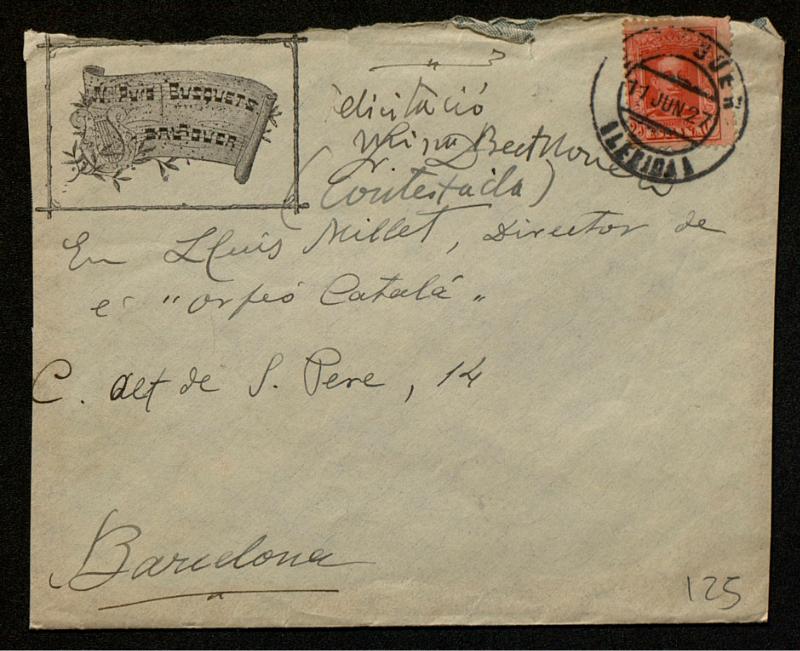 N. Puig Busquets
Balaguer
felicitació
Missa Beethoven
(Contestada)
En Lluís Millet, Director de
e "orfeó Catalá"
C. alt de S. Pere, 14
Barcelona
125
11 JUN 27
(LERIDA)